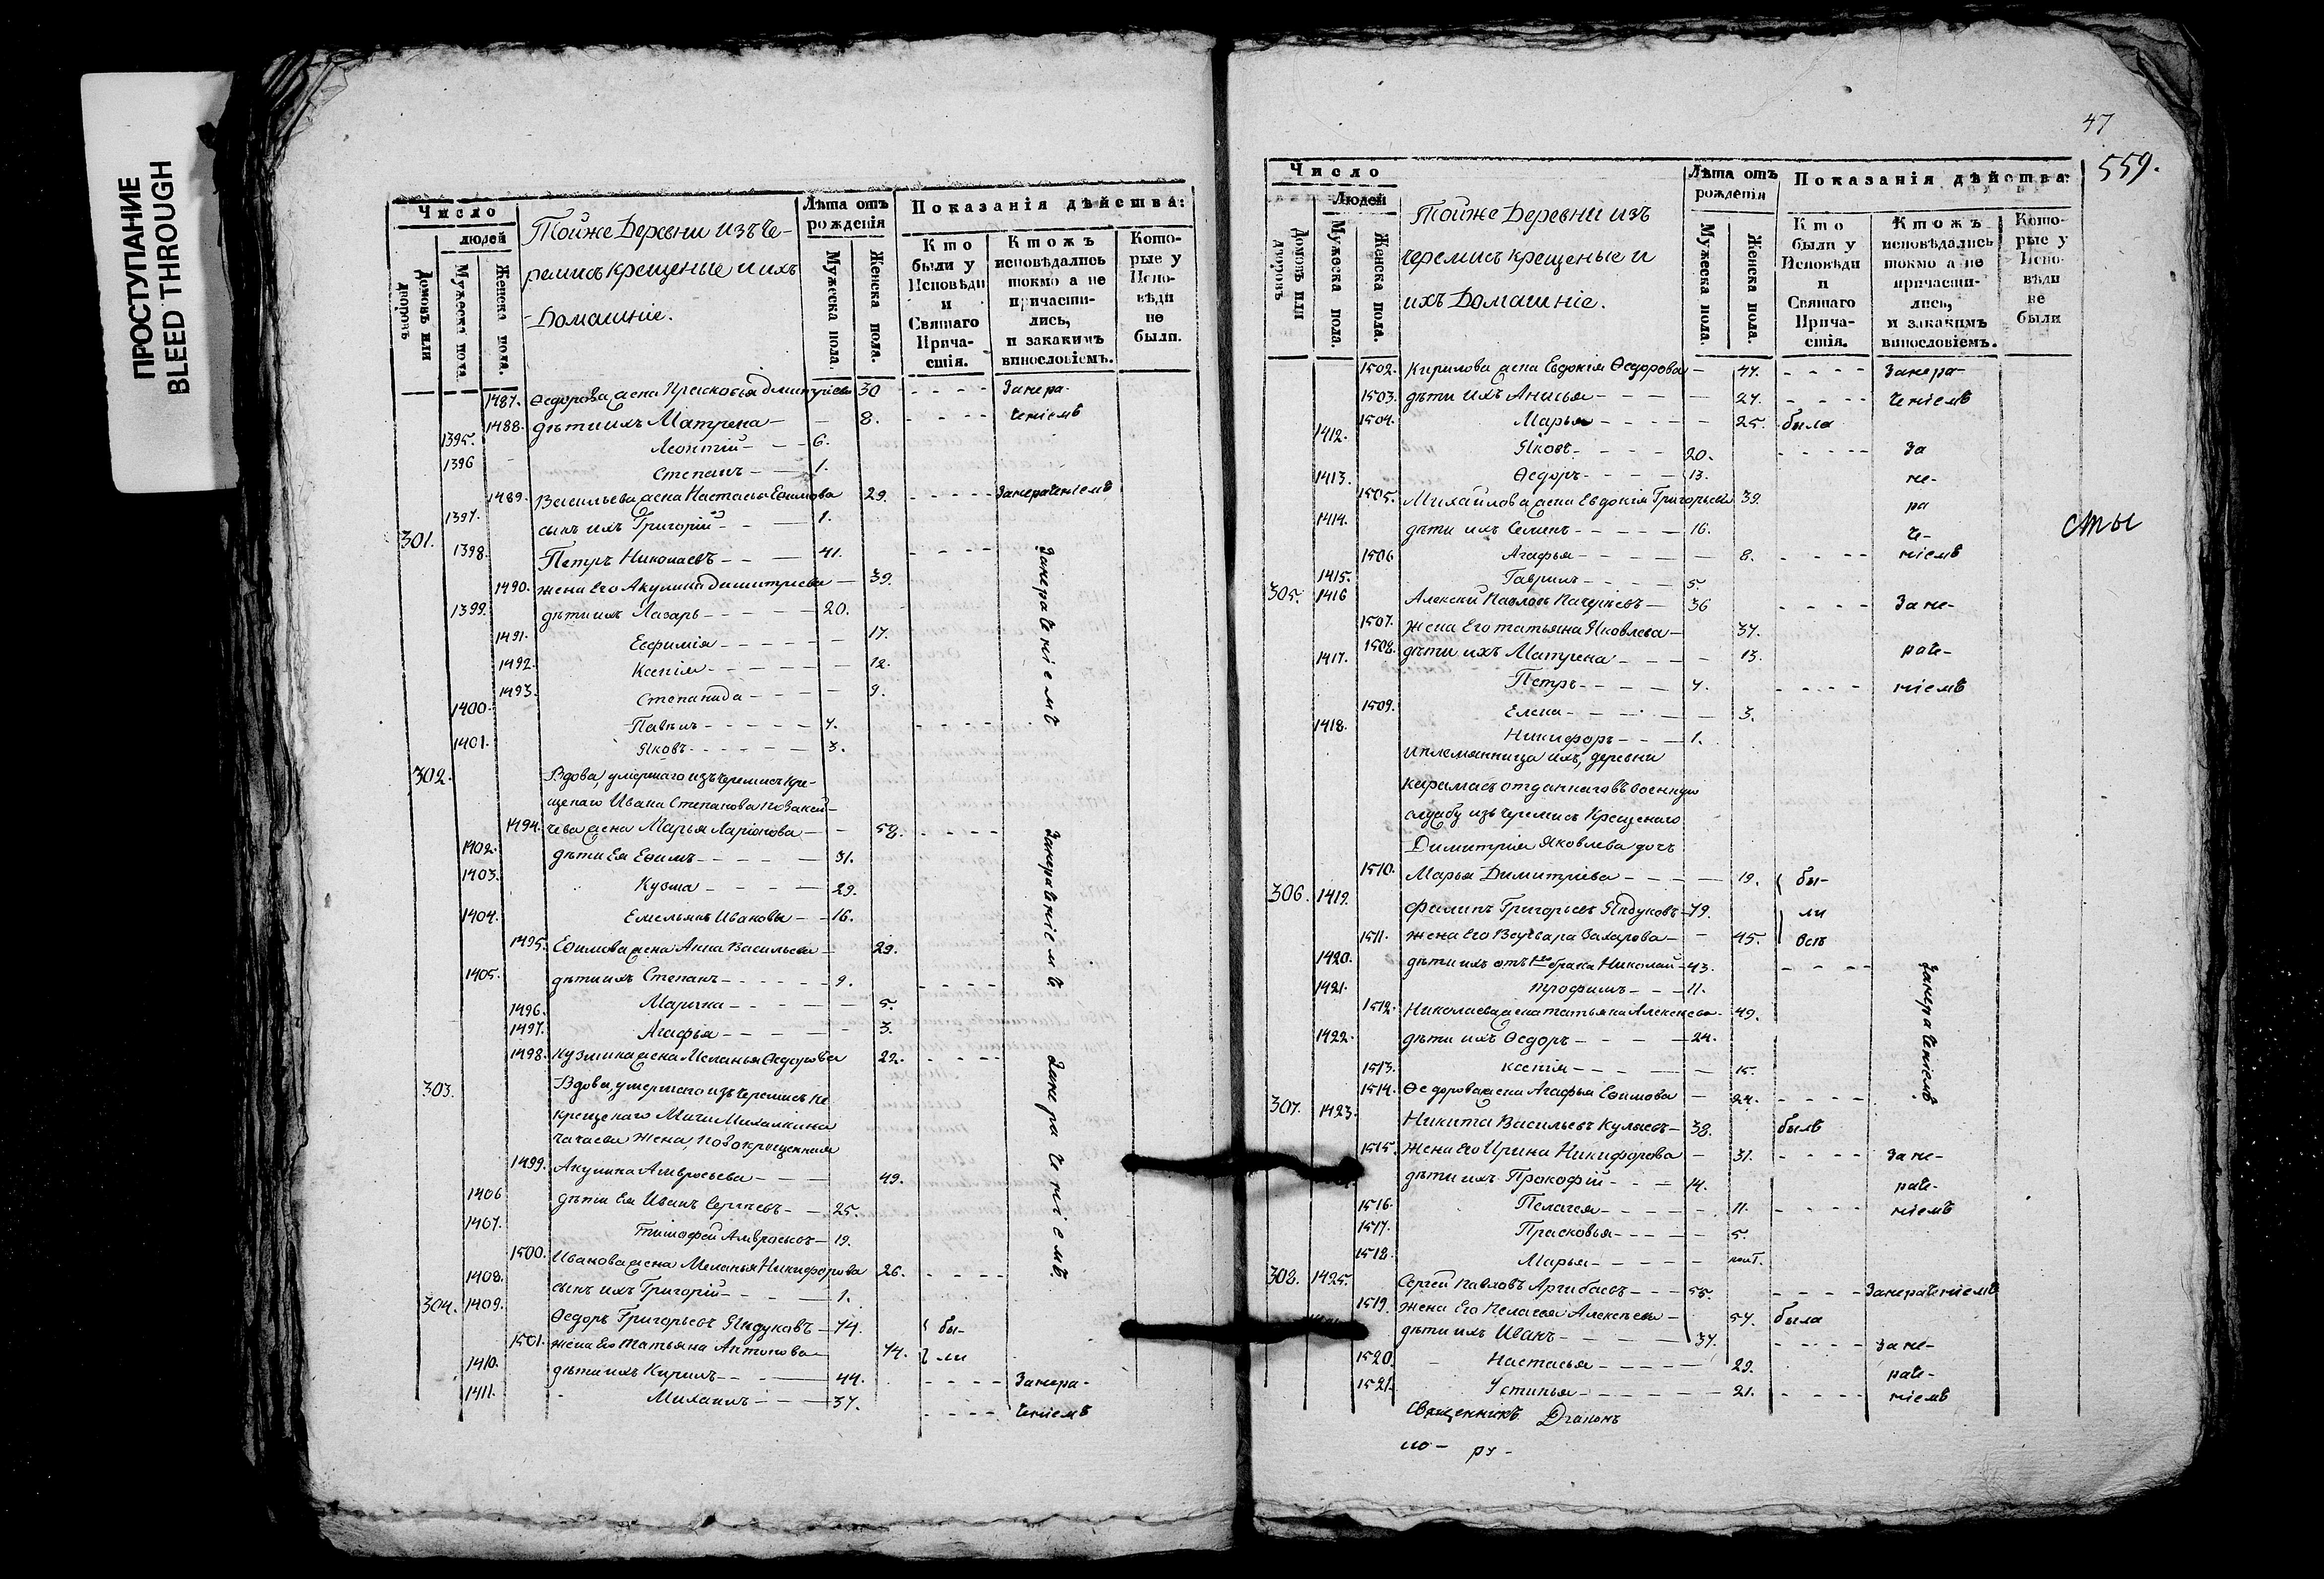 ПРОСТУПАНИЕ
BLEED THROUGH
Число
людей
Домовъ или дворовъ
Мужеска пола.
Женска пола.
Тойже Деревни изъ Че-
ремисъ крещеные и ихъ
Домашніе.
Лѣта отъ рожденія
Мужеска пола.
Женска пола.
Показанія дѣйства:
Кто были у Исповѣди и Святаго Прича-стія.
Ктожъ исповѣдались токмо а не причасти-лись, и закакимъ винословіемъ.
Кото-рые у Испо-вѣди не были.
1487. Ѳедорова жена Прасковья Дмитріева 30 - - - - Занера-
1488. дѣти ихъ Матрена - - 8. - - - - ченіемъ
1395. Леонтій - - - 6.
1396 Степанъ - - 1.
1489. Васильева жена Настасья Ефимова 29. - - - - Занераченіемъ
1397. сынъ ихъ Григорій - - - 1.
301. 1398. Петръ Николаевъ - - - 41. - - - - Занераченіемъ
1490. жена Его Акулина Димитриева - 39.
1399. дѣти ихъ Лазарь - - - - - 20.
1491. Евфимія - - - - - 17.
1492. Ксенія - - - - - - 12.
1493. Степанида - - - - 9.
1400. Павелъ - - - - - 4. - - - -
1401. Яковъ - - - - - - 3.
302. Вдова, умершаго изъ черемисъ кре-
щенаго Ивана Степанова
1494. жена Марья Ларіонова - - 58. - - - - Занераченіемъ
1402. дѣти Ея Ефимъ - - - - - 31.
1403. Кузма - - - - 29.
1404. Емельянъ Ивановы - - 16.
1495. Ефимова жена Анна Васильева - 29.
1405. дѣти ихъ Степанъ - - - - - 9. - - - -
1496. Марина - - - - - 5.
1497. Агафья - - - - - 3.
1498. Кузмина жена Меланья Ѳедорова 22. - - - -
303. Вдова, умершаго изъ черемисъ не Занераченіемъ
крещенаго
жена, новокрещенная
1499. Акулина Амвросьева - - - 49.
1406 дѣти Ея Иванъ Сергѣевъ - - 25.
1407. Тимофей Амвросьевъ - 19.
1500. Иванова жена Меланья Никифорова 26. - - - -
1408. сынъ ихъ Григорій - - - - 1.
304. 1409. Ѳедоръ Григорьевъ Яндуковъ - 74. бы-
1501. жена Его Татьяна Антонова 74. ли
1410. дѣти ихъ Кирилъ - - - - 44. - - - - Занера-
1411. Михаилъ - - - 37. - - - - ченіемъ
47
559.
Число
Людей
Домовъ или дворовъ
Мужеска пола.
Женска пола.
Тойже Деревни изъ
черемисъ крещеные и
ихъ Домашніе.
Лѣта отъ рожденія
Мужеска пола.
Женска пола.
Показанія дѣйства:
Кто были у Исповѣди и Святаго Прича-стія.
Ктожъ исповѣдались токмо а не причасти-лись, и закакимъ винословіемъ.
Кото-рые у Испо-вѣди не были
1502. Кирилова жена Евдокія Ѳедорова - 44. - - - - Занера-
1503. дѣти ихъ Анисья - - - - 27. - - - - ченіемъ
1504. Марья - - - - - 25. была
1412. Яковъ - - - - 20. - - - - - За
1413. Ѳедоръ - - - - 13. не-
1505. Михайлова жена Евдокія Григорьева 39. ра
1414. дѣти ихъ Семенъ - - - - - 16. че-
сты
1506 Агафья - - - - - 8. - - - - ніемъ
1415. Гаврилъ - - - - 5.
305. 1416 Алексѣй Павловъ - 36 - - - - Зане-
1507. жена Его Татьяна Яковлева - 37.
1508. дѣти ихъ Матрена - - - - 13. раче-
1417. Петръ - - - - 4. - - - - ніемъ
1509. Елена - - - - - 3.
1418. Никифоръ - - - 1.
и племянница ихъ, деревни
отданнаго въ военную
службу изъ черемисъ Крещенаго
Димитрія Яковлева дочь
1510. Марья Димитріева - - - - 19. бы-
306. 1419. Филипъ Григорьевъ Яндуковъ - 79. ли
1511. жена Его Варвара Захарова - - 45. Всѣ
1420. дѣти ихъ отъ 1го брака Николай - 43. - - - - Занераченіемъ
1421. Трофимъ - - - 11.
1512. Николаева жена Татьяна Алексѣева - 49.
1422. дѣти ихъ Ѳедоръ - - - - 24.
1513. Ксенія - - - - - 15.
1514. Ѳедорова жена Агафья Ефимова - 24. - - - -
307. 1423. Никита Васильевъ Кулаевъ - 38. былъ
1515. жена Его Ирина Никифорова - 31. - - - - Зане-
дѣти ихъ Прокофій - - - 14. раче-
1516. Пелагея - - - - - 11. - - - - ніемъ
1517. Прасковья - - - - 5.
1518. Марья - - - - -
308. 1425. Сергей Павловъ Аргибаевъ - - - 55. - - - - Занераченіемъ
1519. жена Его Пелагея Алексѣева - 54. была
дѣти ихъ Иванъ - - - - - 34. - - - - Зане-
1520. Настасья - - - - - 29. раче-
1521. Устинья - - - - - - 21. - - - - ніемъ
Священникъ Діаконъ
но- ру-